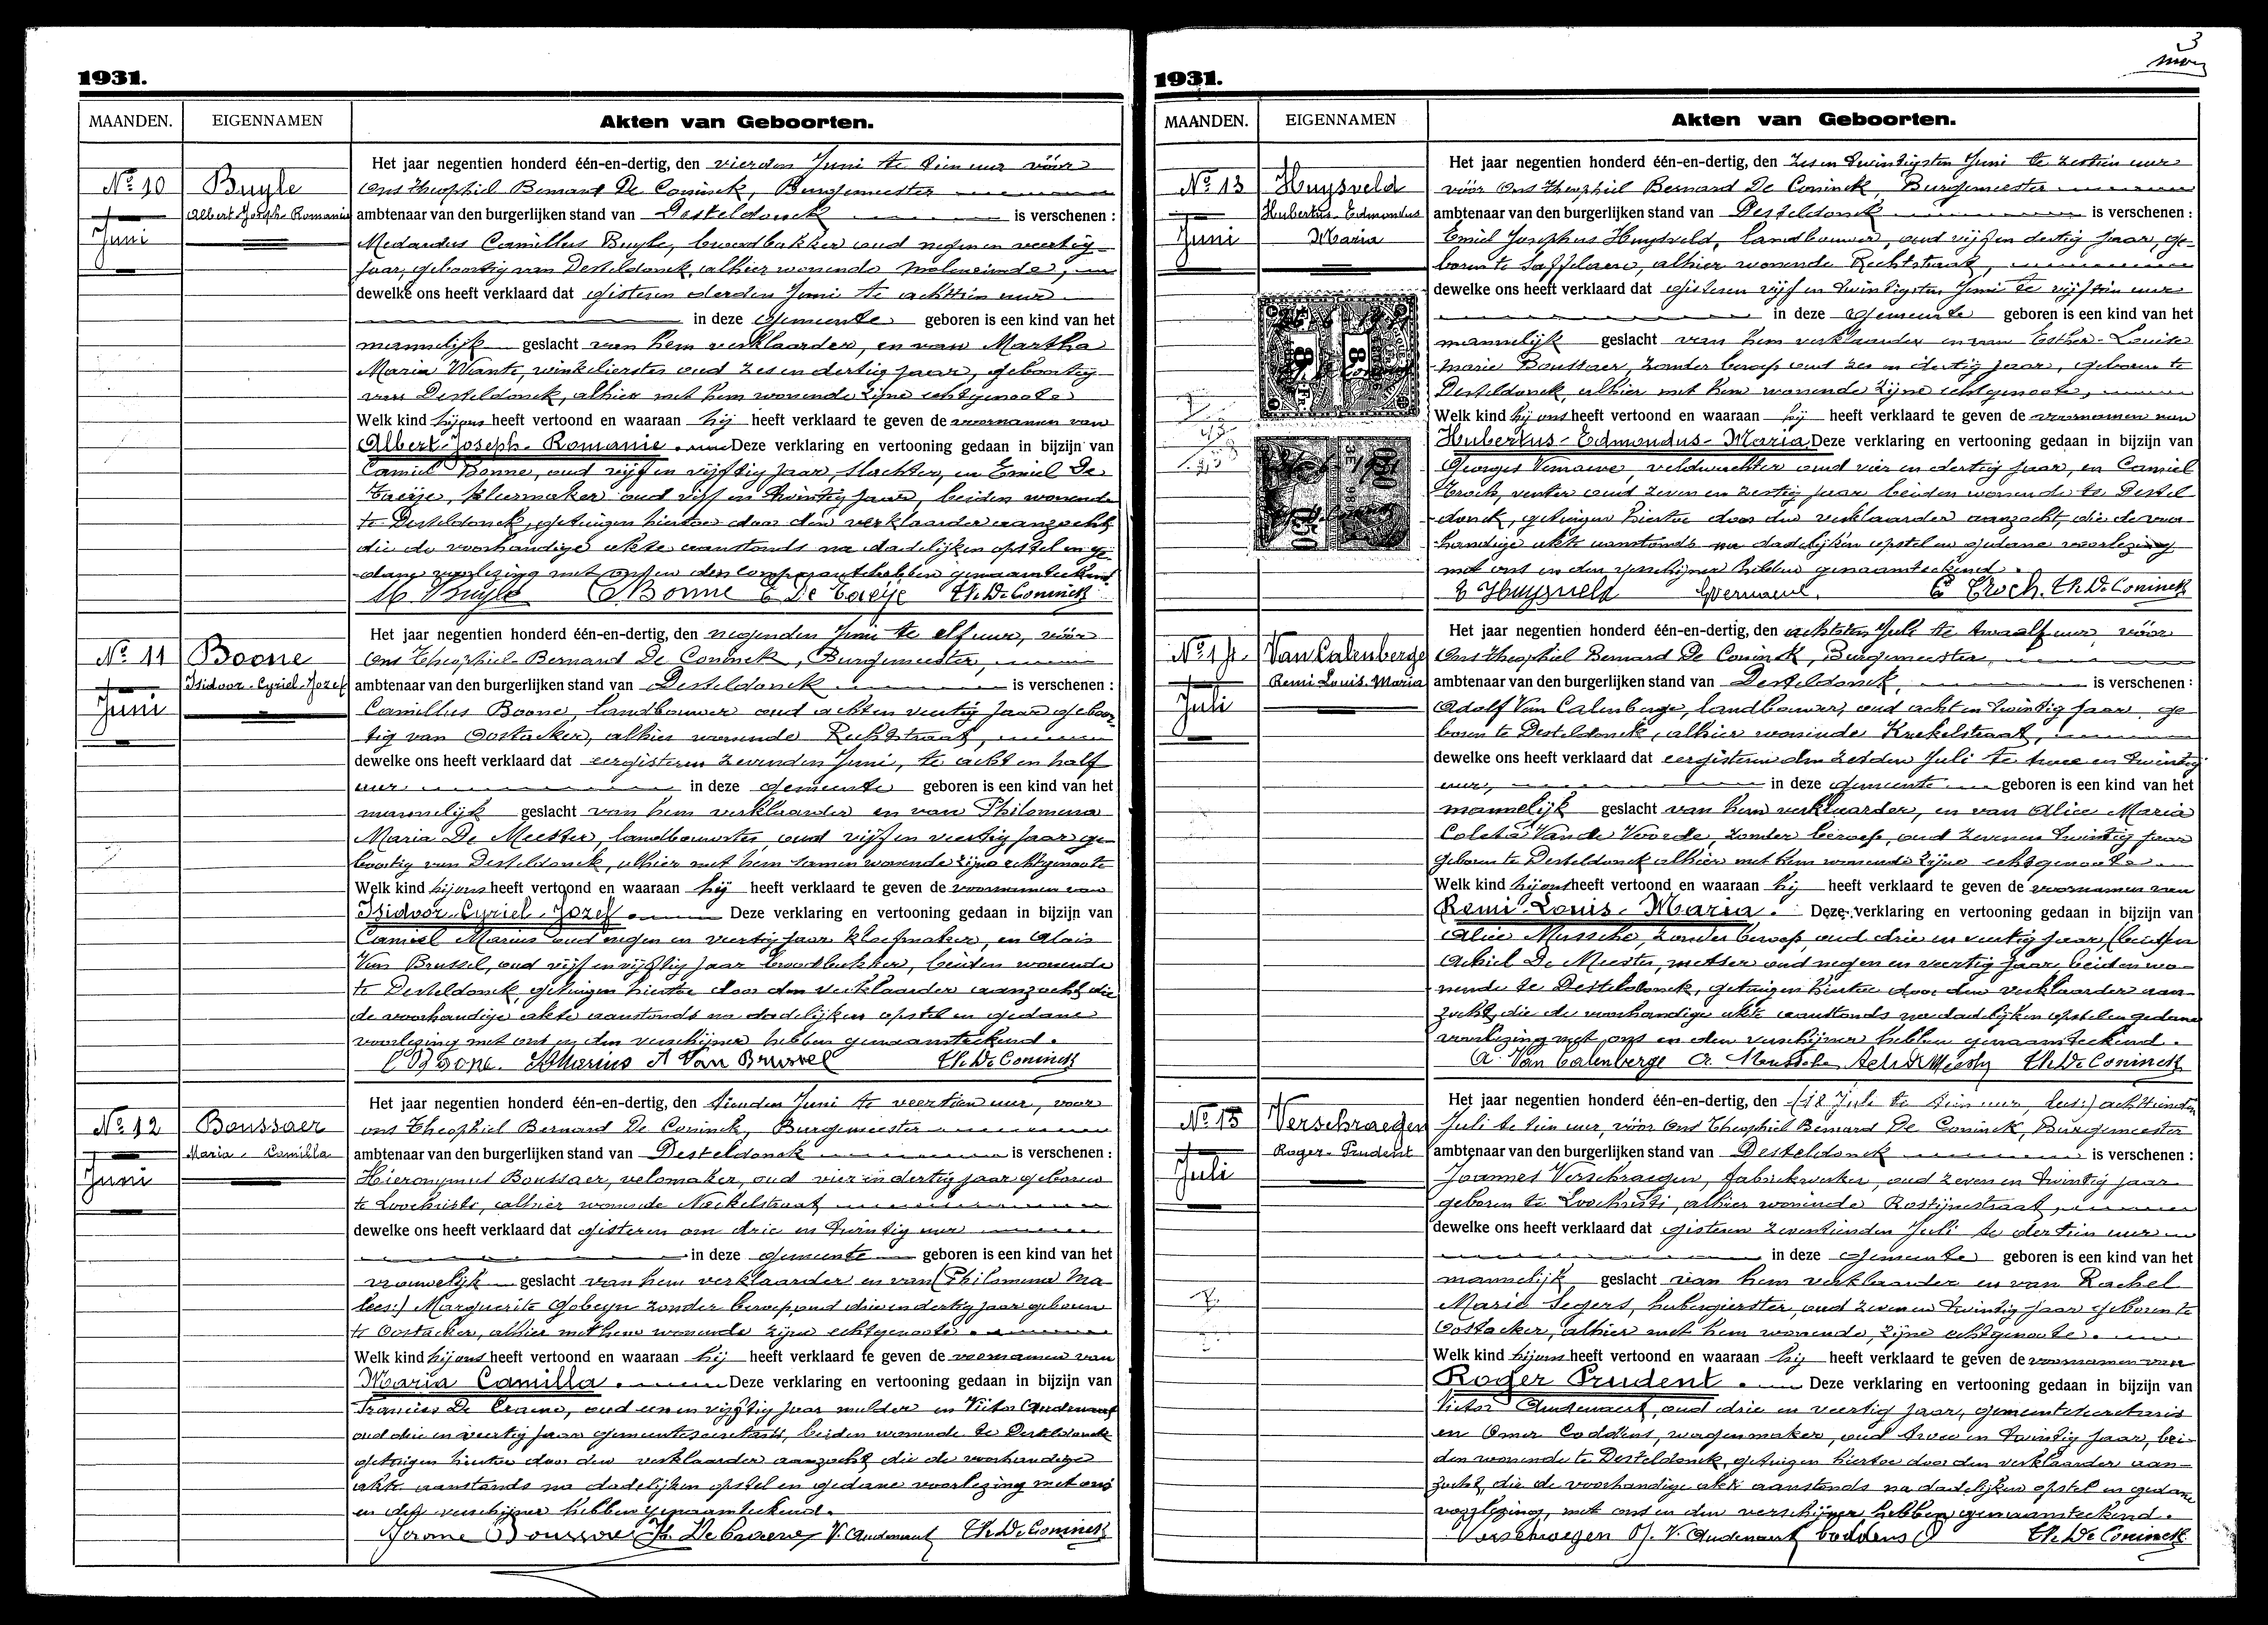 1931.
MAANDEN.
EIGENNAMEN
Akten van Geboorten.
Nº 10
Juni
Buyle
Albert-Joseph-Romanie
Het jaar negentien honderd één-en-dertig, den vierden Juni te tien uur vóór
Ons Theophiel Bernard De Coninck, Burgemeester
ambtenaar van den burgerlijken stand van Desteldonck is verschenen :
Medardus Camillus Buyle, broodbakker oud negen en veertig
jaar, geboortig van Desteldonck, alhier wonende Moleneinde,
dewelke ons heeft verklaard dat gisteren derden Juni te achttien uur
in deze Gemeente geboren is een kind van het
mannelijk geslacht van hem verklaarder, en van Martha
Maria Wante, winkelierster oud zes en dertig jaar, geboortig
van Desteldonck, alhier met hem wonende zijne echtgenoote
Welk kind hij ons heeft vertoond en waaraan hij heeft verklaard te geven de voornamen van
Albert-Joseph-Romanie. Deze verklaring en vertooning gedaan in bijzijn van
Camiel Bonne, oud vijf en vijftig jaar, slachter, en Emiel De
Taeije, kleermaker oud vijf en twintig jaar, beiden wonende
te Desteldonck, getuigen hiertoe door den verklaarder aanzocht,
die de voorhandige akte aanstonds na dadelijken opstel en ge-
dane voorlezing met ons en den comparant hebben genaamteekend.
M. Buyle C Bonne E De Taeije Th. De Coninck
Nº 11
Juni
Boone
Isidoor-Cyriel-Jozef
Het jaar negentien honderd één-en-dertig, den negenden Juni te elf uur, vóór
Ons Theophiel-Bernard De Coninck, Burgemeester,
ambtenaar van den burgerlijken stand van Desteldonck is verschenen :
Camillus Boone, landbouwer oud acht en veertig jaar geboor-
tig van Oostacker, alhier wonende Rechtstraat,
dewelke ons heeft verklaard dat eergisteren zevenden Juni, te acht en half
uur in deze gemeente geboren is een kind van het
mannelijk geslacht van hem verklaarder en van Philomena
Maria De Meester, landbouwster, oud vijf en veertig jaar ge-
boortig van Desteldonck, alhier met hem samen wonende zijne echtgenoote
Welk kind hij ons heeft vertoond en waaraan hij heeft verklaard te geven de voornamen van
Isidoor-Cyriel-Jozef. Deze verklaring en vertooning gedaan in bijzijn van
Camiel Marius oud negen en veertig jaar kloefmaker, en Alois
Van Brussel, oud vijf en vijftig jaar broodbakker, beiden wonende
te Desteldonck, getuigen hiertoe door den verklaarder aanzocht, die
de voorhandige akte aanstonds na dadelijken opstel en gedane
voorlezing met ons en den verschijner hebben genaamteekend.
C Boone. Marius A Van Brussel Th. De Coninck
Nº 12
Juni
Boussaer
Maria-Camilla
Het jaar negentien honderd één-en-dertig, den tienden Juni te veertien uur, voor
ons Theophiel Bernard De Coninck, Burgemeester
ambtenaar van den burgerlijken stand van Desteldonck is verschenen :
Hieronymus Boussaer, velomaker, oud vier en dertig jaar geboren
te Loochristi, alhier wonende straat
dewelke ons heeft verklaard dat gisteren om drie en twintig uur
in deze gemeente geboren is een kind van het
vrouwelijk geslacht van hem verklaarder en van (Philomena Ma-
lees:) Marguerite Gobeyn zonder beroep, oud drie en dertig jaar geboren
te Oostacker, alhier met hem wonende zijne echtgenoote.
Welk kind hij ons heeft vertoond en waaraan hij heeft verklaard te geven de voornamen van
Maria Camilla. Deze verklaring en vertooning gedaan in bijzijn van
Francies De Craene, oud een en vijftig jaar mulder en Victor Audenaert
oud drie en veertig jaar gemeentesecretaris, beiden wonende te Desteldonck
getuigen hiertoe door den verklaarder aanzocht die de voorhandige
akte aanstonds na dadelijken opstel en gedane voorlezing met ons
en den verschijner hebben genaamteekend.
Jerome Boussaer Fr. De Craene V. Audenaert Th. De Coninck
3
1931.
MAANDEN.
EIGENNAMEN
Akten van Geboorten.
Nº 13
Juni
Huysveld
Hubertus-Edmondus
Maria
Het jaar negentien honderd één-en-dertig, den zes en twintigsten Juni te zestien uur
vóór Ons Theophiel Bernard De Coninck, Burgemeester
ambtenaar van den burgerlijken stand van Desteldonck is verschenen :
Emiel Josephus Huysveld, landbouwer, oud vijf en dertig jaar, ge-
boren te Saffelaere, alhier wonende Rechtstraat,
dewelke ons heeft verklaard dat gisteren vijf en twintigsten Juni te vijftien uur
in deze Gemeente geboren is een kind van het
mannelijk geslacht van hem verklaarder en van Esther-Louise
Marie Boussaer, zonder beroep oud zes en dertig jaar, geboren te
Desteldonck, alhier met hem wonende zijne echtgenoote,
Welk kind hij ons heeft vertoond en waaraan hij heeft verklaard te geven de voornamen van
Hubertus-Edmondus-Maria Deze verklaring en vertooning gedaan in bijzijn van
Georges Vernaeve, veldwachter oud vier en dertig jaar, en Camiel
Troch, renter oud zeven en zestig jaar beiden wonende te Destel
donck, getuigen hiertoe door den verklaarder aanzocht, die de voor
handige akte aanstonds na dadelijken opstel en gedane voorlezing
met ons en den verschijner hebben genaamteekend.
E Huysveld C Troch. Th. De Coninck
Nº 14
Juli
Van Calenberge
Remi Louis. Maria
Het jaar negentien honderd één-en-dertig, den achtsten Juli te twaalf uur vóór
Ons Theophiel Bernard De Coninck, Burgemeester
ambtenaar van den burgerlijken stand van Desteldonck, is verschenen :
Adolf Van Calenberge, landbouwer, oud acht en twintig jaar, ge
boren te Desteldonck, alhier wonende Krekelstraat,
dewelke ons heeft verklaard dat eergisteren den zesden Juli te twee en twintig
uur, in deze gemeente geboren is een kind van het
mannelijk geslacht van hem verklaarder, en van Alice Maria
Coleta Van de Voorde, zonder beroep, oud zeven en twintig jaar
geboren te Desteldonck alhier met hem wonende zijne echtgenoote
Welk kind hij ons heeft vertoond en waaraan hij heeft verklaard te geven de voornamen van
Remi-Louis-Maria. Deze verklaring en vertooning gedaan in bijzijn van
Alice Mussche, zonder beroep oud drie en veertig jaar, en
Achiel De Meester, metser oud negen en veertig jaar beiden wo-
nende te Desteldonck, getuigen hiertoe door den verklaarder aan-
zocht, die de voorhandige akte aanstonds na dadelijken opstel en gedane
voorlezing met ons en den verschijner hebben genaamteekend.
A. Van Calenberge A. Mussche Achiel De Meester Th. De Coninck
Nº 15
Juli
Verschraegen
Roger-Prudent
Het jaar negentien honderd één-en-dertig, den (18 Juli te tien uur, lees:) achttienden
Juli te tien uur, vóór Ons Theophiel Bernard De Coninck, Burgemeester
ambtenaar van den burgerlijken stand van Desteldonck is verschenen :
Joannes Verschraegen, fabriekwerker, oud zeven en twintig jaar
geboren te Loochristi, alhier wonende Rostijnestraat,
dewelke ons heeft verklaard dat gisteren zeventienden Juli te dertien uur
in deze Gemeente geboren is een kind van het
mannelijk geslacht van hem verklaarder en van Rachel
Marie Segers, herbergierster, oud zeven en twintig jaar geboren te
Oostacker, alhier met hem wonende, zijne echtgenoote.
Welk kind hij ons heeft vertoond en waaraan hij heeft verklaard te geven de voornamen van
Roger Prudent. Deze verklaring en vertooning gedaan in bijzijn van
Victor Audenaert, oud drie en veertig jaar, gemeentesecretaris
en Omer Coddens, wagenmaker, oud twee en twintig jaar, bei-
den wonende te Desteldonck, getuigen hiertoe door den verklaarder aan-
zocht, die de voorhandige akte aanstonds na dadelijken opstel en gedane
voorlezing, met ons en den verschijner hebben genaamteekend.
Verschraegen J. V. Audenaert Coddens O Th. De Coninck